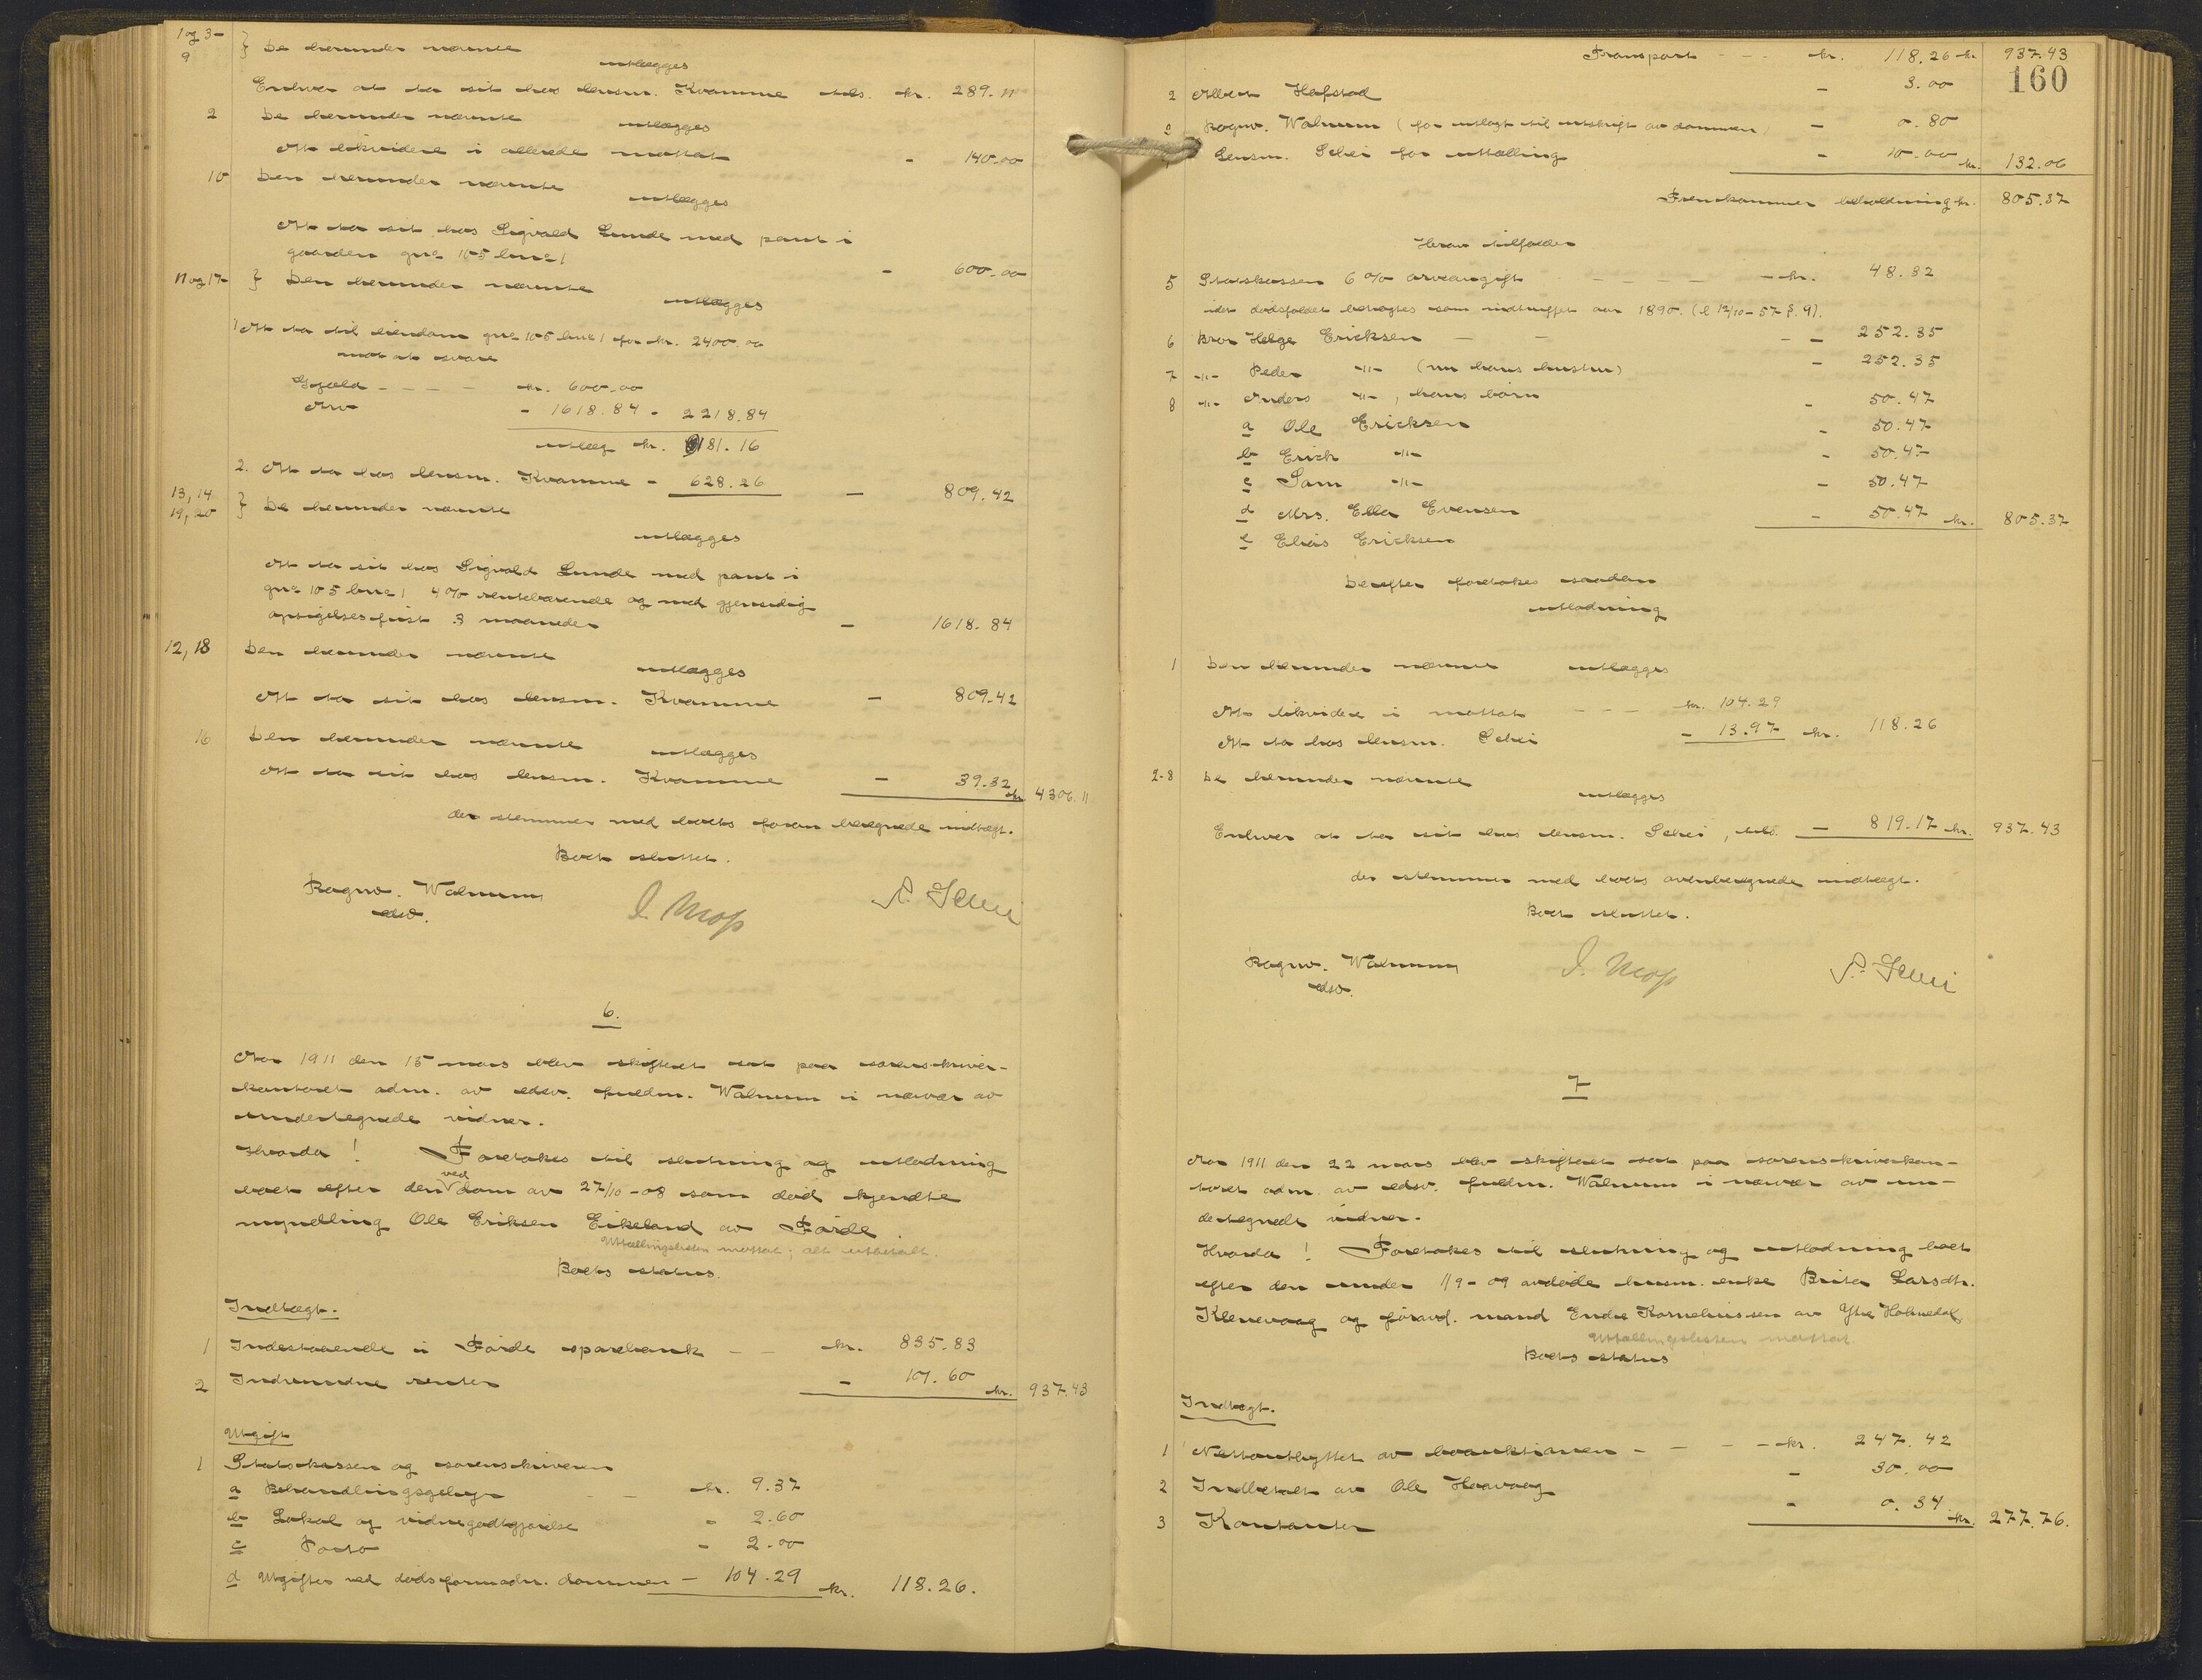 1 og 3-
9 } De herunder nævnte
utlægges
Enhver at ta sit hos lensm. Kvamme tils. kr. 289.11
2 De herunder nævnte
utlægges
At likvidere i allerede mottat - 140.00
10 Den herunder nævnte
utlægges
At ta sit hos Sigvald Lunde med pant i
gaarden gno 105 bno 1 - 600.00
11 og 17 } Den herunder nævnte
utlægges
1 At ta til eiendom gno 105 bno 1 for kr. 2400.00
mot at svare
Gjæld - - - - kr. 600.00
Arv - 1618.84 - 2218.84
utlæg kr. 181.16
2. At ta hos lensm. Kvamme - 628.26 - 809.42
13, 14
19, 20 } De herunder nævnte
utlægges
At ta sit hos Sigvald Lunde med pant i
gno 105 bno 1 4% rentebærende og med gjensidig
opsigelsesfrist 3 maaneder - 1618.84
12, 18 Den herunder nævnte
utlægges
At ta sit hos lensm. Kvamme - 809.42
16 Den herunder nævnte
utlægges
At ta sit hos lensm. Kvamme - 39.32 kr. 4306.11
der stemmer med boets foran beregnede indtægt.
Boet sluttet.
Ragnv. Walnum
edsv.
I. Moss
P. Schei
6.
Aar 1911 den 15 mars blev skifteret sat paa sorenskriver-
kontoret adm. av edsv. fuldm. Walnum i nærvær av
undertegnede vidner.
Hvorda! Foretokes til slutning og utlodning
boet efter den ved dom av 27/10-08 som død kjendte
myndling Ole Eriksen Eikeland av Førde.
Uttællingslisten mottat; alt utbetalt.
Boets status.
Indtægt.
1 Indestaaende i Førde sparebank - - kr. 835.83
2 Indvundne renter - 101.60 kr. 937.43
Utgift
1 Statskassen og sorenskriveren
a Behandlingsgebyr - kr. 9.37
b Lokal og vidnegodtgjørelse - 2.60
c Porto - 2.00
d Utgifter ved dødsformodn. dommen - 104.29 kr. 118.26.
Transport - - kr. 118.26 kr. 937.43
160
2 Albert Hafstad - 3.00
3 Ragnv. Walnum (for utlagt til utskrift av dommen) - 0.80
4 Lensm. Schei for uttælling - 10.00 kr. 132.06
Fremkommer beholdning kr. 805.37
Herav tilfalder
5 Statskassen 6% arveavgift - - - - - kr. 48.32
idet dødsfaldet betragtes som indtruffet aar 1890. (l 12/10-57 §. 9).
6 Bror Helge Ericksen - - - 252.35
7 -"- Peder -"- (nu hans hustru) - 252.35
8 -"- Anders -"- , hans børn - 50.47
a Ole Ericksen - 50.47
b Erick -"- - 50.47
c Sam -"- - 50.47
d Mrs. Ella Evensen - 50.47 kr. 805.37
e Elias Ericksen
Derefter foretokes saadan
utlodning
1 Den herunder nævnte utlægges
At likvidere i mottat - - - kr. 104.29
At ta hos lensm. Schei - 13.97 kr. 118.26
2-8 De herunder nævnte
utlægges
Enhver at ta sit hos lensm. Schei, tils. - 819.17 kr. 937.43
der stemmer med boets ovenberegnede indtægt.
Boet sluttet.
Ragnv. Walnum
edsv.
I. Moss
P. Schei
7
Aar 1911 den 22 mars blev skifteret sat paa sorenskriverkon-
toret adm. av edsv. fuldm. Walnum i nærvær av un-
dertegnede vidner.
Hvorda! Foretokes til slutning og utlodning boet
efter den under 11/9-09 avdøde husm. enke Brita Larsdtr.
Klenevaag og foravd. mand Endre Korneliussen av Ytre Holmedal
Uttællingslisten mottat.
Boets status
Indtægt.
1 Nettoutbyttet av boauktionen - - - - kr. 247.42
2 Indbetalt av Ole Haavaag - 30.00
3 Kontanter - 0.34 kr. 277.76.